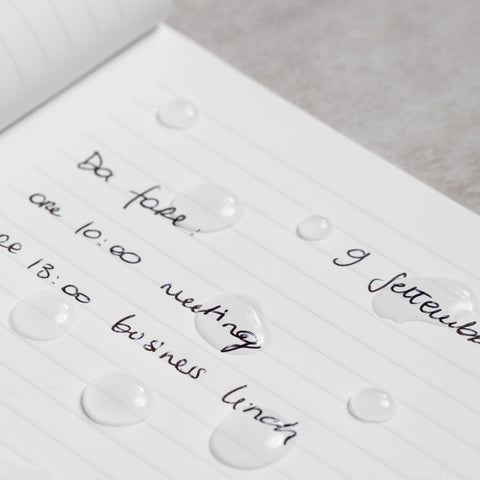 Da fare: 9 Settemb
ore 10:00 meeting
re 13:00 business lunch